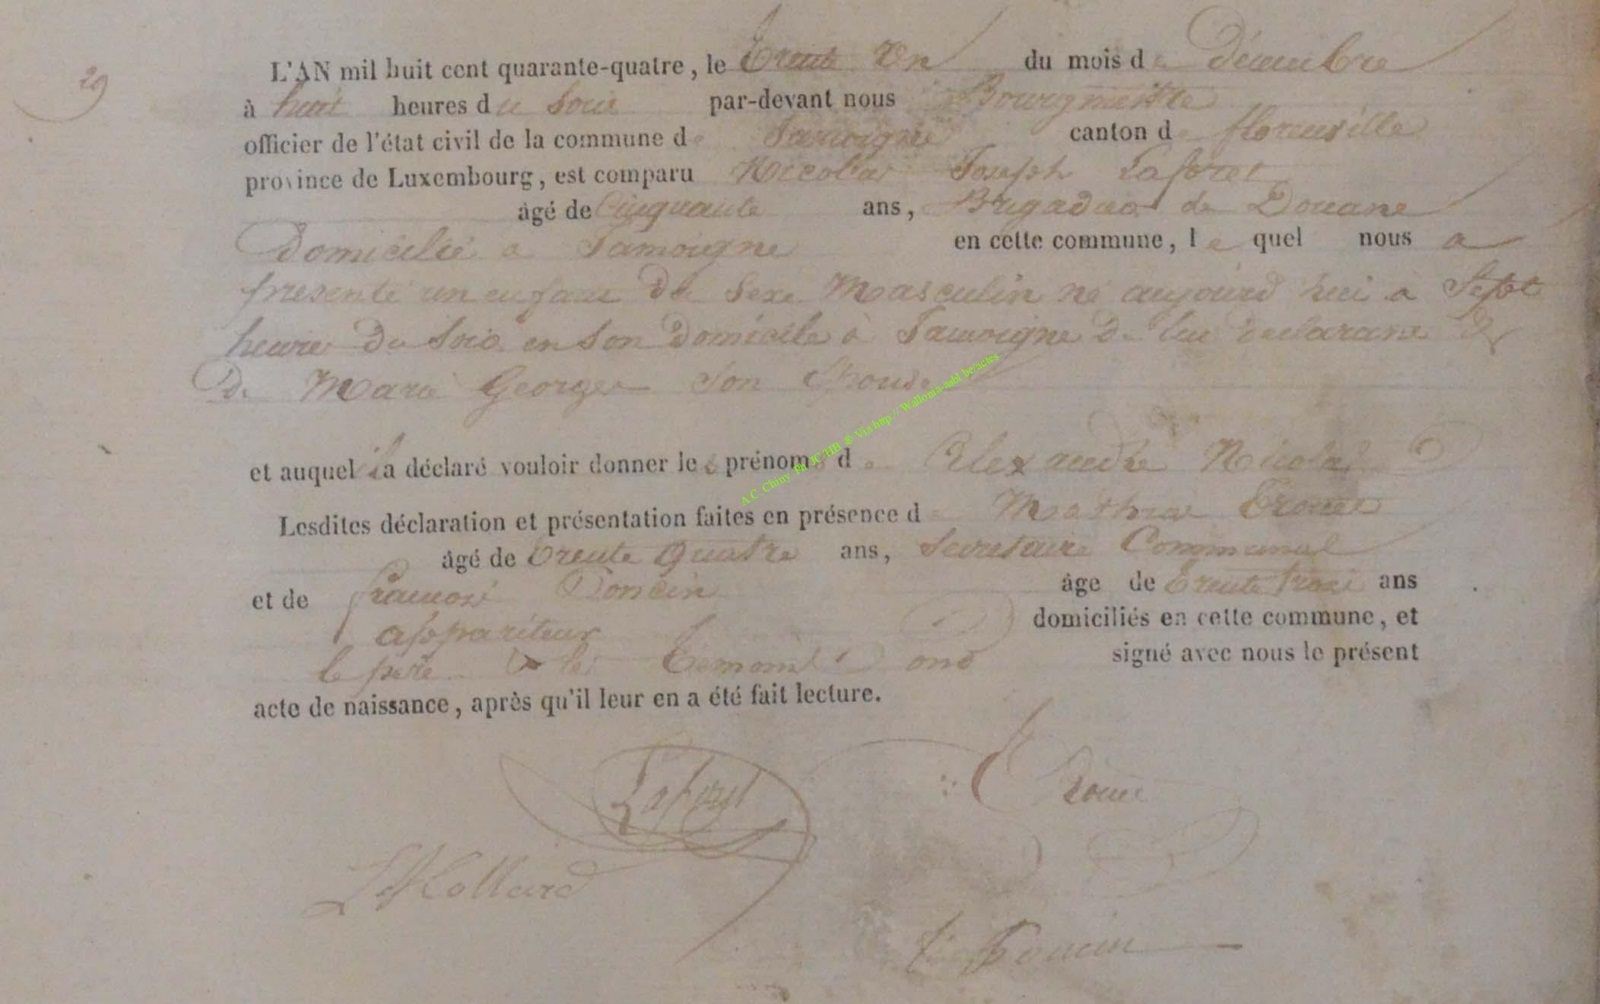 29
L'AN mil huit cent quarante-quatre, le Trente Un du mois de Décembre
à huit heures du Soir par-devant nous Bourgmestre
officier de l'état civil de la commune de Jamoigne canton de florenville
province de Luxembourg, est comparu Nicolas Joseph Laforet
âgé de Cinquante ans, Brigadier de Douane
Domicilié a Jamoigne en cette commune, lequel nous a
presenté un enfant du Sexe Masculin né aujourd hui à Sept
heure du Soir en son Domicile à Jamoigne de lui declarant &
de Marie George son Epouse
et auquel il a déclaré vouloir donner les prénoms de Alexandre Nicolas
Lesdites déclaration et présentation faites en présence de Mathieu
âgé de trente quatre ans, Secretaire Communal
et de françois Poncin âge de trente trois ans
appariteur domiciliés en cette commune, et
le pere & les temoins ont signé avec nous le présent
acte de naissance, après qu'il leur en a été fait lecture.
Laforet
Poncin
A.C. Chiny Ph JC/HB ® Via http://Wallonia-asbl.be/actes